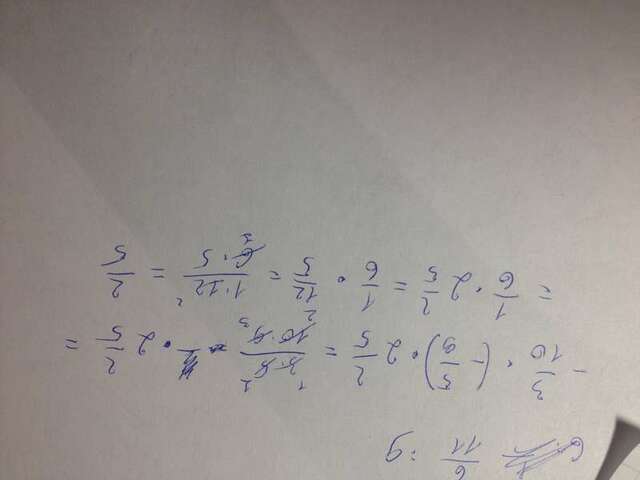 6 6/11 : 9
- 3/10 · (- 5/9) · 2 2/5 = 3·5/10·9 · 2 2/5 =
= 1/6 · 2 2/5 = 1/6 · 12/5 = 1·12/6·5 = 2/5